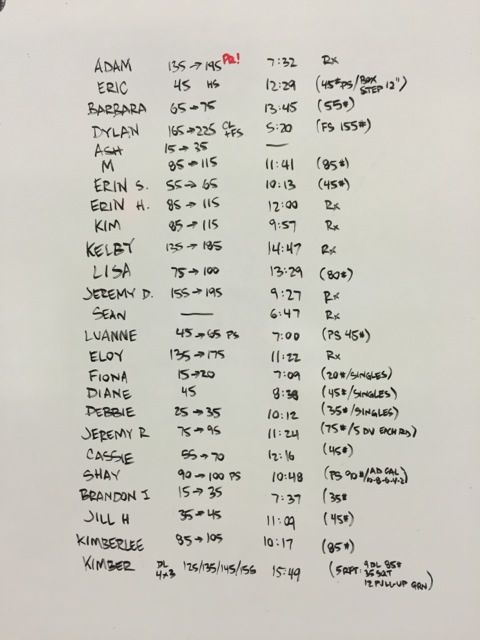 ADAM 135→195 PR! 7:32 Rx
ERIC 45 HS 12:29 (45# PS/BOX STEP 12")
BARBARA 65→75 13:45 (55#)
DYLAN 165→225 CL+FS 5:20 (FS 155#)
ASH 15→35 —
M 85→115 11:41 (85#)
ERIN S. 55→65 10:13 (45#)
ERIN H. 85→115 12:00 Rx
KIM 85→115 9:57 Rx
KELBY 135→185 14:47 Rx
LISA 75→100 13:29 (80#)
JEREMY D. 155→195 9:27 Rx
SEAN — 6:47 Rx
LUANNE 45→65 PS 7:00 (PS 45#)
ELOY 135→175 11:22 Rx
FIONA 15→20 7:09 (20#/SINGLES)
DIANE 45 8:38 (45#/SINGLES)
DEBBIE 25→35 10:12 (35#/SINGLES)
JEREMY R 75→95 11:24 (75#/5 DU EACH RD)
CASSIE 55→70 12:16 (45#)
SHAY 90→100 PS 10:48 (PS 90#/AD CAL 10-8-6-4-2)
BRANDON I 15→35 7:37 (35#
JILL H 35→45 11:09 (45#)
KIMBERLEE 85→105 10:17 (85#)
KIMBER DL 4x3 125/135/145/155 15:49 (5 RFT: 9 DL 85# 35 SQT 12 PULL-UP GRN)